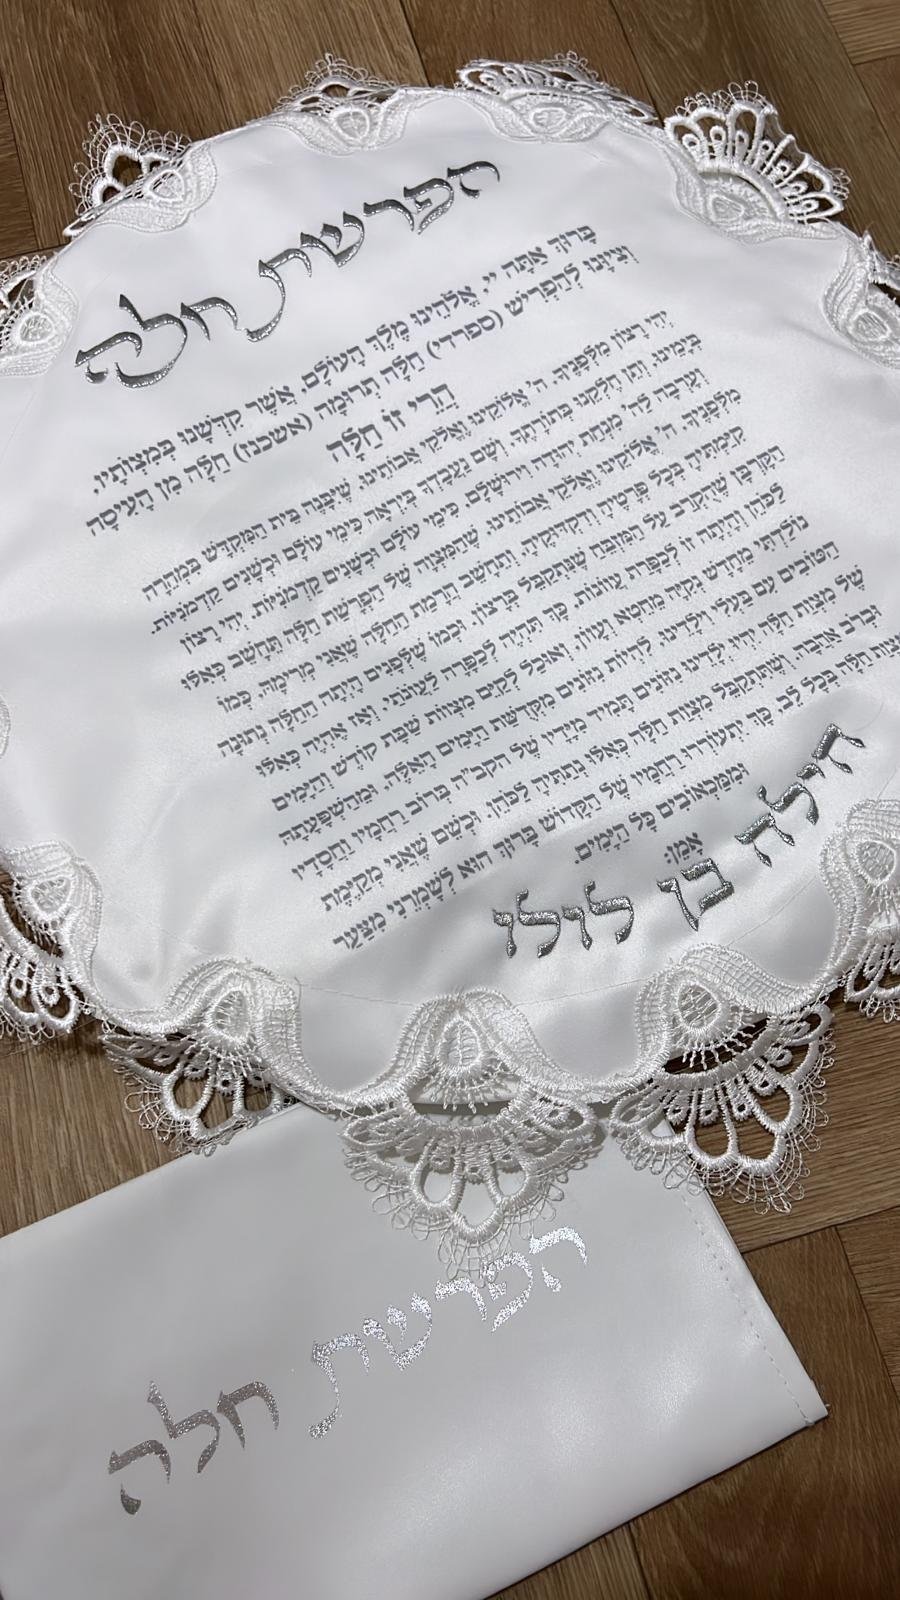 הפרשת חלה
בָּרוּךְ אַתָּה יי, אֱלֹהֵינוּ מֶלֶךְ הָעוֹלָם, אֲשֶׁר קִדְּשָׁנוּ בְּמִצְוֹתָיו,
וְצִיוָּנוּ לְהַפְרִישׁ (ספרדי) חַלָּה תְּרוּמָה (אשכנז) חַלָּה מִן הָעִיסָה
הֲרֵי זוֹ חַלָּה
יְהִי רָצוֹן מִלְּפָנֶיךָ, ה' אֱלוֹקֵינוּ וֵאלֹקֵי אֲבוֹתֵינוּ, שֶׁיִּבָּנֶה בֵּית הַמִּקְדָּשׁ בִּמְהֵרָה
בְיָמֵינוּ, וְתֵן חֶלְקֵנוּ בְּתוֹרָתֶךָ, וְשָׁם נַעֲבָדְךָ בְּיִרְאָה כִּימֵי עוֹלָם וּכְשָׁנִים קַדְמֹנִיּוֹת.
וְעָרְבָה לַה' מִנְחַת יְהוּדָה וִירוּשָׁלָםִ, כִּימֵי עוֹלָם וּכְשָׁנִים קַדְמֹנִיּוֹת. יְהִי רָצוֹן
מִלְּפָנֶיךָ, ה' אֱלוֹקֵינוּ וֵאלֹקֵי אֲבוֹתֵינוּ, שֶׁהַמִּצְוָה שֶׁל הַפְרָשַׁת חַלָּה תֵּחָשֵׁב כְּאִלּוּ
קִיַּמְתִּיהָ בְּכָל פְּרָטֶיהָ וְדִקְדּוּקֶיהָ, וְתֵחָשֵׁב הֲרָמַת הַחַלָּה שֶׁאֲנִי מְרִימָה, כְּמוֹ
הַקָּרְבָּן שֶׁהֻקְרַב עַל הַמִּזְבֵּחַ שֶׁנִּתְקַבֵּל בְּרָצוֹן. וּכְמוֹ שֶׁלְּפָנִים הָיְתָה הַחַלָּה נְתוּנָה
לַכֹּהֵן וְהָיְתָה זוֹ לְכַפָּרַת עֲווֹנוֹת, כָּךְ תִּהְיֶה לְכַפָּרָה לַעֲוֹנֹתַי, וְאָז אֶהְיֶה כְּאִלּוּ
נוֹלַדְתִּי מֵחָדָשׁ נְקִיָּה מֵחֵטְא וְעָוֹן, וְאוּכַל לְקַיֵּם מִצְווֹת שַׁבַּת קוֹדֶשׁ וְהַיָּמִים
הַטּוֹבִים עִם בַּעֲלִי וִילָדֵינוּ, לִהְיוֹת נִזּוֹנִים מִקְּדֻשַּׁת הַיָּמִים הָאֵלֶּה, וּמֵהַשְׁפָּעָתָהּ
שֶׁל מִצְוַת חַלָּה יִהְיוּ יְלָדֵינוּ נִזּוֹנִים תָּמִיד מִיָּדָיו שֶׁל הקב"ה בְּרוֹב רַחֲמָיו וַחֲסָדָיו
וּבְרֹב אַהֲבָה, וְשֶׁתִּתְקַבֵּל מִצְוַת חַלָּה כְּאִלּוּ נְתַתִּיהָ לַכֹּהֵן. וּכְשֵׁם שֶׁאֲנִי מְקַיֶּמֶת
מִצְוַת חַלָּה בְּכָל לֵב, כָּךְ יִתְעוֹרְרוּ רַחֲמָיו שֶׁל הַקָּדוֹשׁ בָּרוּךְ הוּא לְשָׁמְרֵנִי מִצַּעַר
וּמִמַּכְאוֹבִים כָּל הַיָּמִים.
אָמֵן:
הילה בן לולו
הפרשת חלה